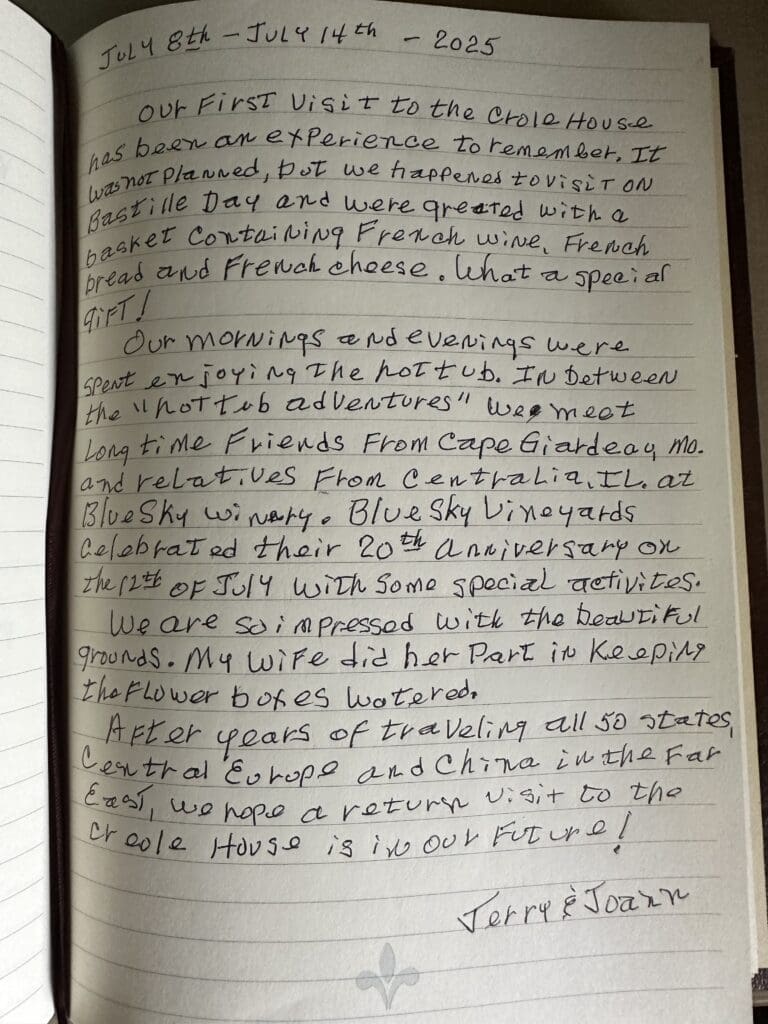 July 8th - July 14th - 2025
Our First Visit to the Crole House
has been an experience to remember. It
was not planned, but we happened to visit on
Bastille Day and were greated with a
basket containing French wine, French
bread and French cheese. What a special
gift!
Our mornings and evenings were
spent enjoying the hot tub. In between
the "hot tub adventures" we meet
long time Friends From Cape Giardeau, Mo.
and relatives From Centralia, IL. at
Blue Sky winery. Blue Sky Vineyards
celebrated their 20th anniversary on
the 12th of July with some special activites.
We are so impressed with the beautiful
grounds. My wife did her part in keeping
the flower boxes watered.
After years of traveling all 50 states,
Central Europe and China in the Far
East, we hope a return visit to the
Creole House is in our future!
Jerry & Joann